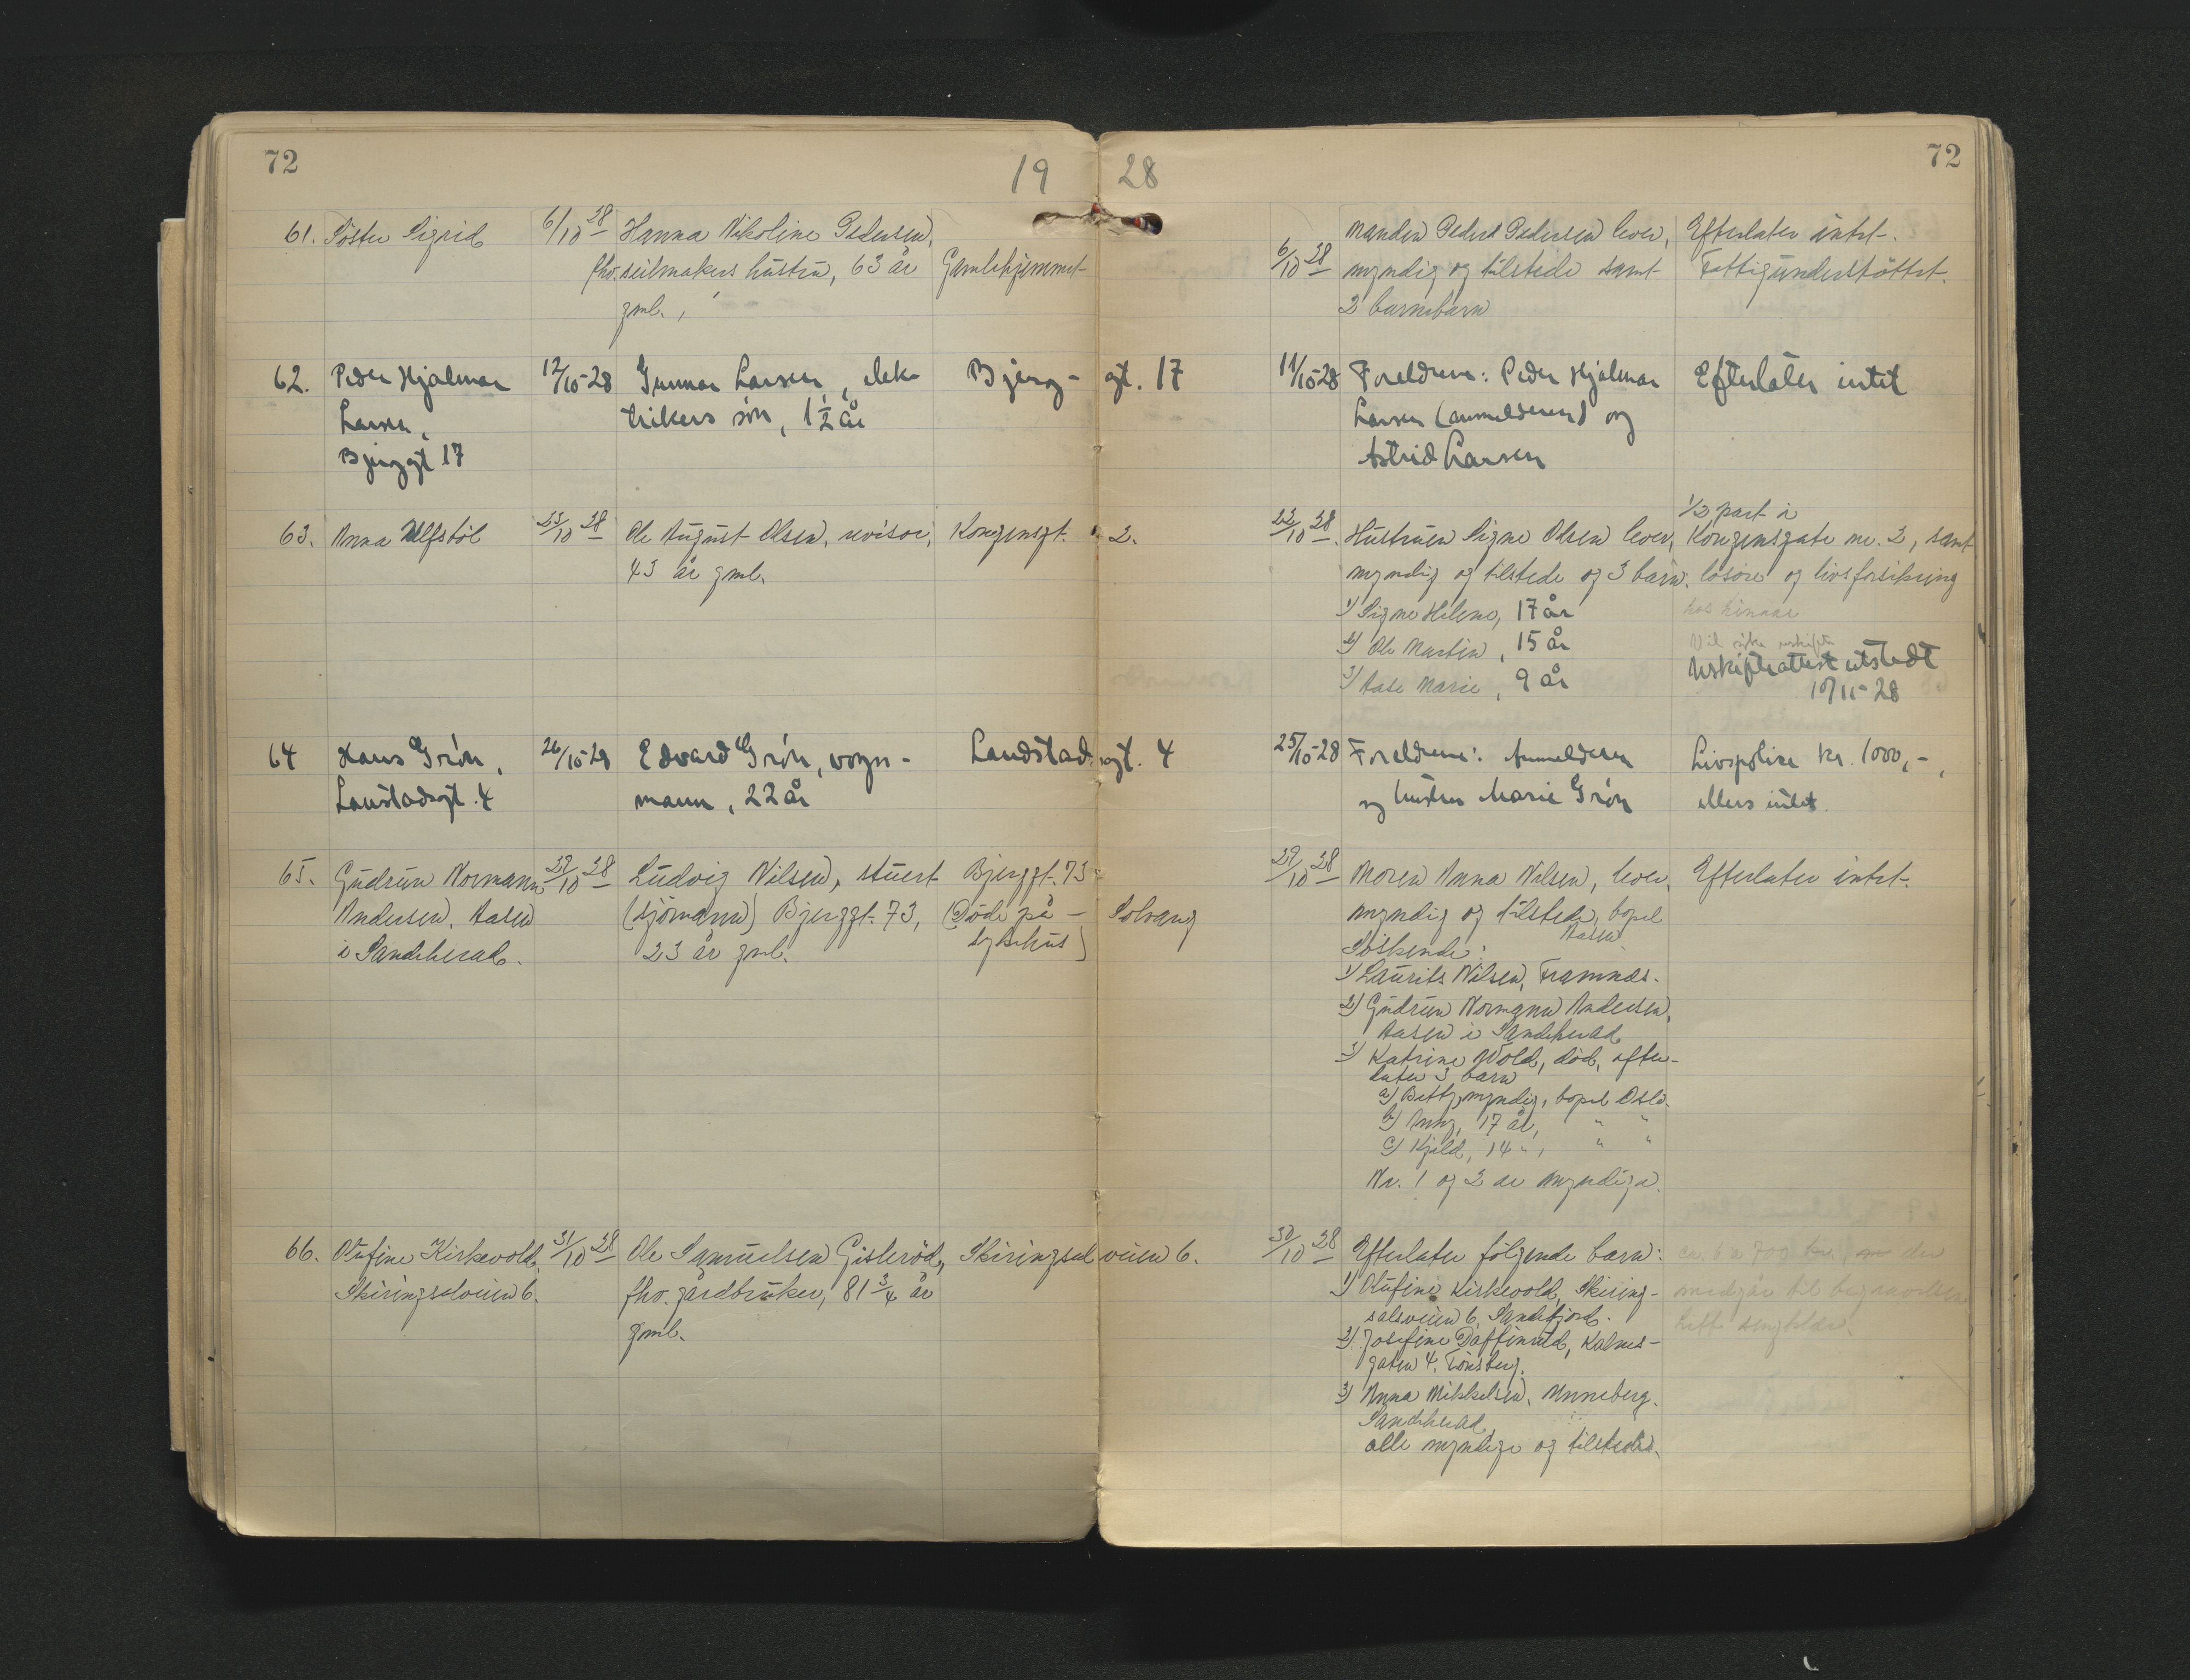 72
19 28
72
61. Söster Sigrid 6/10 28 Hanna Nikoline Pedersen, manden Peder Pedersen lever, Efterlater intet.
fhv. seilmakers hustru, 63 år Gamlehjemmet 6/10 28 myndig og tilstede samt Fattigunderstöttet.
gml. 2 barnebarn
62. Peder Hjalmar 12/10-28 Gunnar Larsen, elek- Bjerg- gt. 17 11/10-28 Foreldrene: Peder Hjalmar Efterlater intet
Larsen, trikers sön, 1½ år Larsen (anmelderen) og
Bjerggt 17 Astrid Larsen
1/2 part i
63. Anna Ulfstöl 23/10 28 Ole August Olsen, revisor, Kongensgt. 2. 22/10 28. Hustruen Signe Olsen lever, Kongensgate nr. 2, samt
43 år gml. myndig og tilstede og 3 barn. lösöre og livsforsikring
1) Signe Helene, 17 år
2) Ole Martin, 15 år Vil söke uskifte
3) Aase Marie, 9 år Uskifteattest utstedt
10/11-28
64 Hans Grön, 26/10-28 Edvard Grön, vogn- Landstads gt. 4 25/10-28 Foreldrene: Anmelderen Livspolise kr. 1000,-,
Lanstadsgt. 4 mann, 22 år og hustru Marie Grön ellers intet.
65. Gudrun Normann 29/10 28 Ludvig Nilsen, stuert Bjerggt. 73 29/10 28 Moren Anna Nilsen, lever, Efterlater intet.
Andersen, Aasen (sjömann) Bjerggt. 73, (Döde på – Solvang myndig og tilstede, bopel
Aasen
i Sandeherad. 23 år gml. sykehus) Söskende:
1) Laurits Nilsen, Framnæs.
2) Gudrun Normann Andersen,
Aasen i Sandeherad
3) Katrine Wold, död, efter-
later 3 barn
a) Betty, myndig, bopel Oslo.
b) Anny, 17 år, " "
c) Kjeld, 14 ", " "
Nr. 1 og 2 er myndige.
66. Olufine Kirkevold, 31/10 28 Ole Samuelsen Gisleröd, Skiringsal veien 6. 30/10 28 Efterlater fölgende barn:
Skiringsalveien 6. fhv. gårdbruker, 81 3/4 år 1) Olufine Kirkevold, Skiring- medgår til begravelsen
gml. salsveien 6, Sandefjord.
2) Josefine Daffinrud, Kalnes-
gaten 4. Tönsberg.
3) Anna Mikkelsen, Unneberg.
Sandeherad
alle myndige og tilstede.